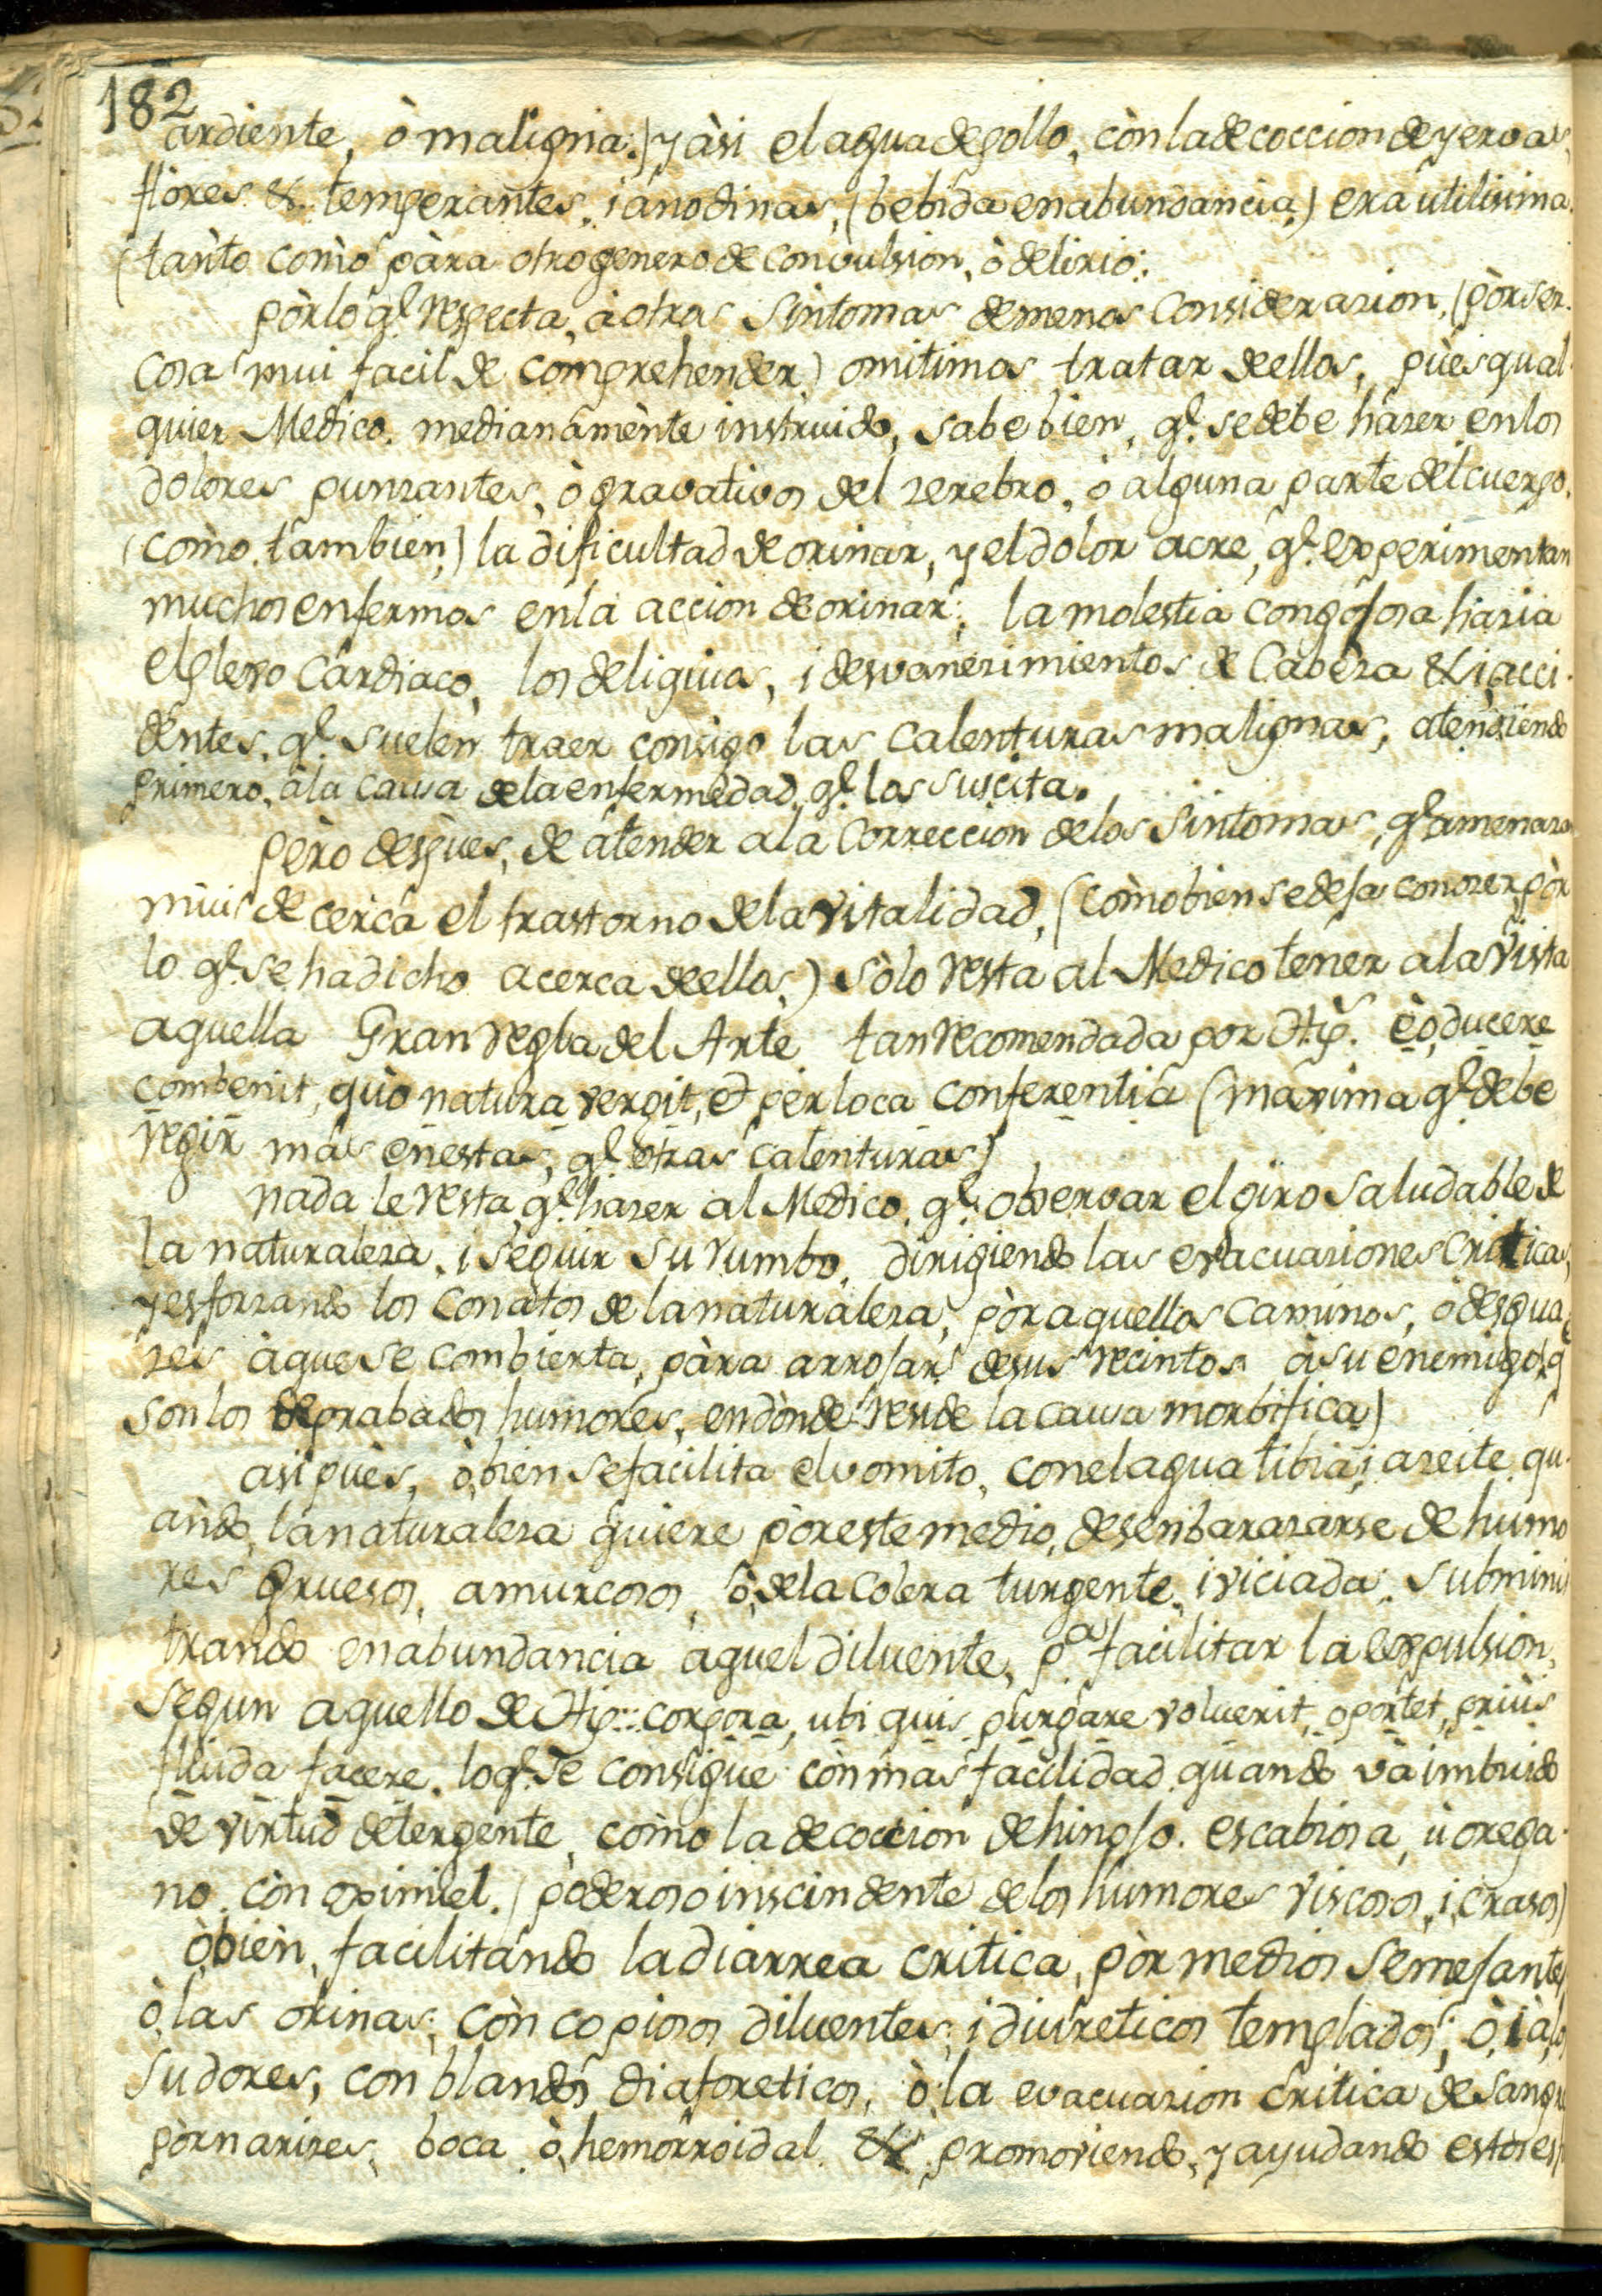 182
ardiente, ò maligna:) y àsi el agua de pollo, còn la decoccion de yervas,
flòres &. temperantes, i anodinas, (bebida en abundancia,) era utilisima.
(tanto còmo pàra otro genero de convulsion, ò delirio:
pòr lo q.e respecta, à otros Sintomas de menos Considerazion, (pòr ser
Cosa mui facil de comprehender) omitimos tratar de ellos, pùes qual-
quier Medico. medianamènte instruido, sabe bien, q.e se debe házer en los
dolores punzantes, ò gravativos del zerebro, ò alguna parte del cuerpo,
(còmo. tambien,) la dificultad de orinar, y el dolor acre, q.e experimentan
muchos enfermos en la accion de orinar; la molestia congojosa házia
el plexo Cardiaco, los deliquios, i desvanezimientos de Cabeza & i acci-
dentes. q.e suelen traer consigo las Calenturas malignas, atendiendo
primero, à la causa de la enfermedad, q.e los suscita.
pèro despues, de atender a la Correccion de los Sintomas, q.e amenaza
mùi de cerca el trastorno de la vitalidad, (còmo bien se deja conozer, pòr
lo q.e se ha dicho acerca de ellos,) sòlo resta al Medico tener a la vista
aquella Gran regla del Arte tan recomendada por Hip. èo, ducere
combenit, quò natura vergit, et pèr loca conferentia (maxima q.e debe
regir mas en estas, q.e otras calenturas)
nada le resta, q.e házer al Medico, q.e observar el giro saludable de
la naturaleza, i seguir su rumbo, dirigiendo las evacuaziones Criticas,
y esforzando los conàtos de la naturaleza, pòr aquellos caminos, ò desgua-
zes àque se combierta, pàra arrojar de sus recintos à su enemigo, (q.e
son los deprabados humores, en dònde reside la causa morbifica)
asi pùès, ò, bien se facilita el vomito, con el agua tibia, i azeite, qu-
ando, la naturaleza quiere pòr este medio, desenbarazarse de humo
res gruesos, amurcosos, ò, de la Colera turgente, i viciada, subminis
trando en abundancia aquel diluente, p.a facilitar la expulsion,
segun aquello de Hip:: corpora, ubi quis purgare voluerit, oportet, priùs
fluida facere. lo q.e se consigue còn mas facilidad quando và imbuido
de virtud detergente, còmo la decoccion de hinojo. escabiosa, ù orega-
no. còn oximiel. (poderoso inscindente de los humores viscosos, i, crasos)
ò, bièn, facilitando la diarrea critica, pòr medios semejantes
ò, las orinas; còn copiosos diluentes; i diureticos templados; ò, i à, los
sudores, con blandos diaforeticos, ò, la evacuazion critica de sangre
pòr narizes, boca, ò, hemorroidal. &. promoviendo, y ayudando estos es